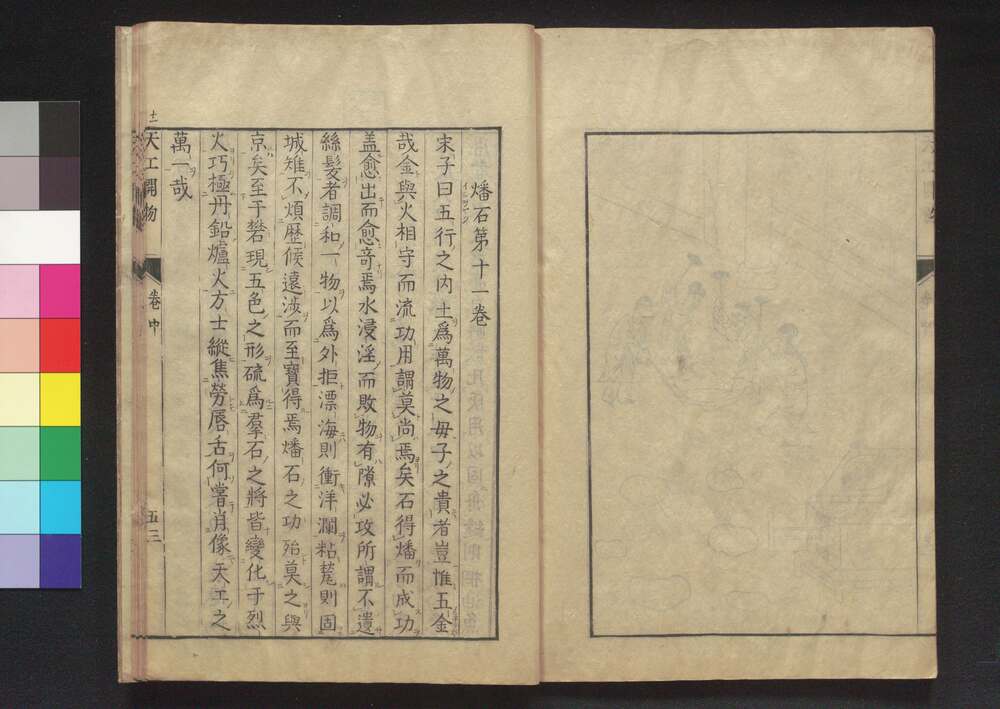 燔石第十一卷
宋子曰五行之内土爲萬物之母子之貴者豈惟五金
哉金與火相守而流功用謂莫尚焉矣石得燔而成功
盖愈出而愈竒焉水浸淫而敗物有隙必攻所謂不遺
絲髮者調和一物以爲外拒漂海則衝洋瀾粘甃則固
城雉不煩歷候遠涉而至寶得焉燔石之功殆莫之與
京矣至于礬現五色之形硫爲羣石之將皆變化于烈
火巧極丹鉛爐火方士縱焦勞唇舌何甞肖像天工之
萬一哉
天工開物
卷中
五三